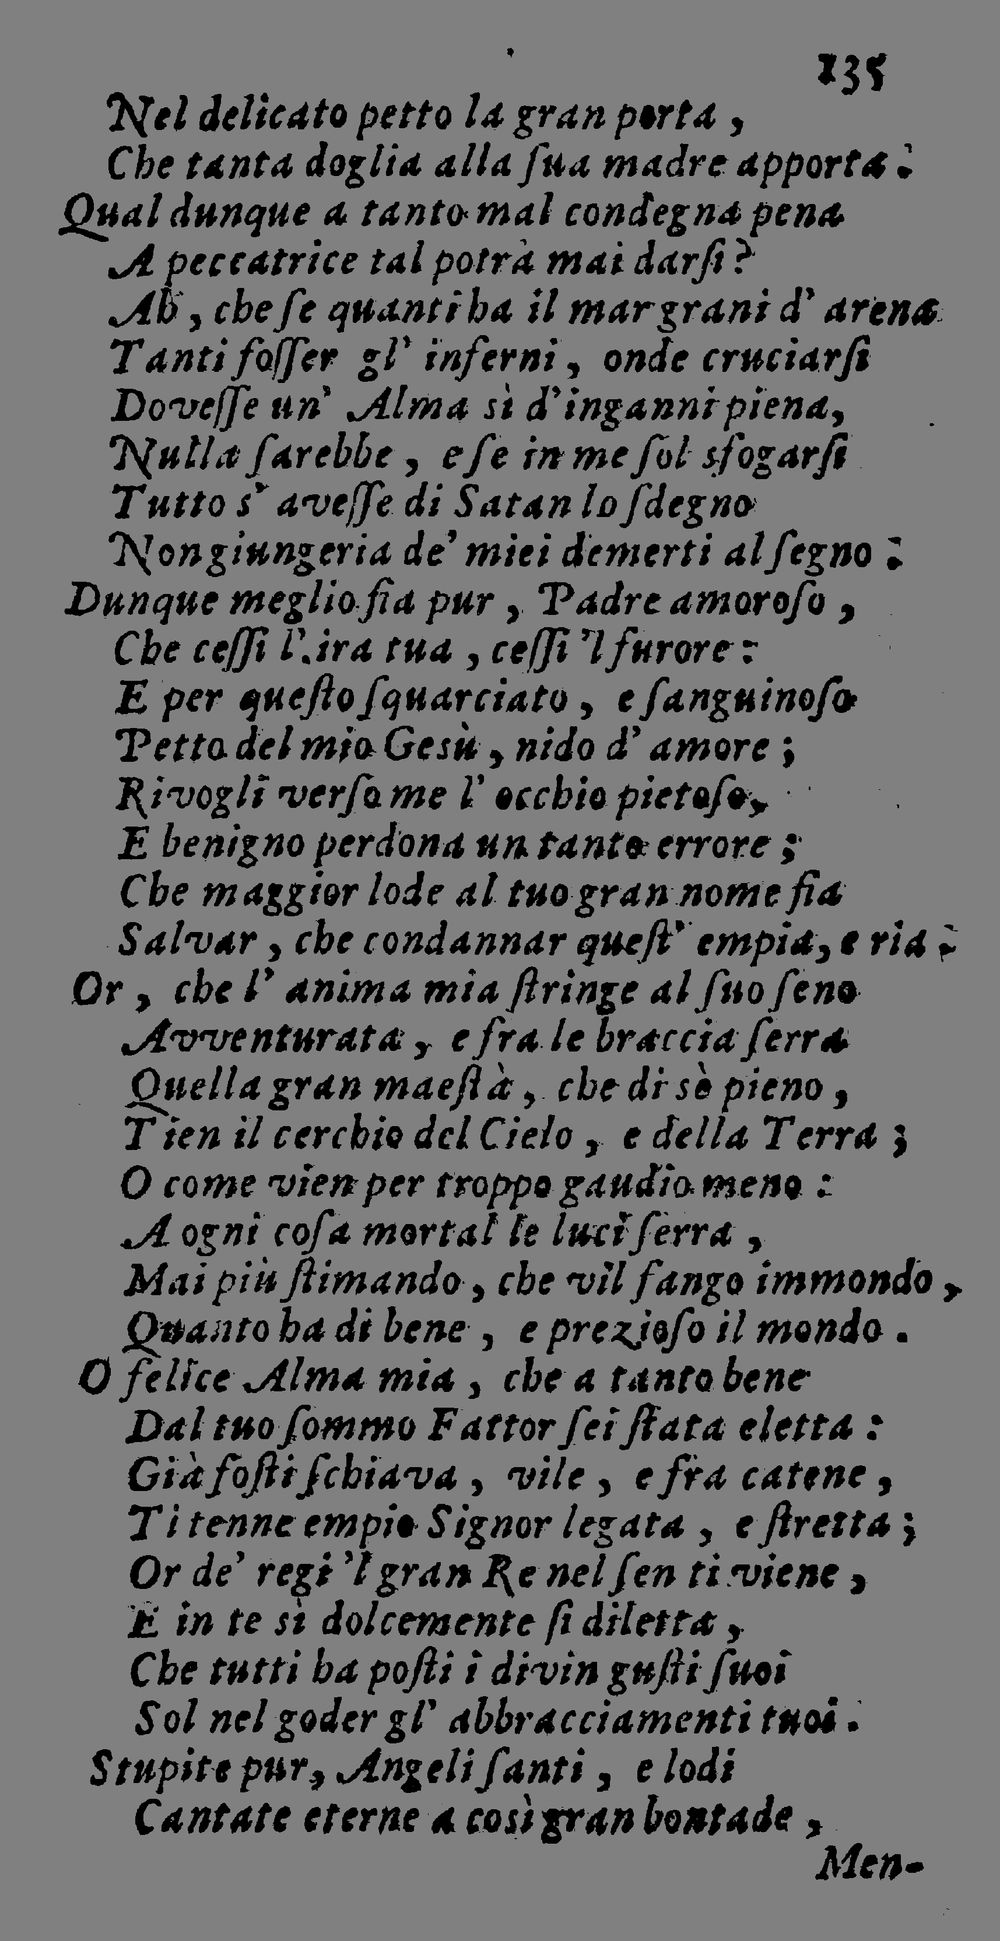 135
Nel delicato petto la gran porta,
Che tanta doglia alla ſua madre apporta:
Qual dunque a tanto mal condegna pena
A peccatrice tal potrà mai darſi?
Ah, che ſe quanti ha il mar grani d' arena
Tanti foſſer gl' inferni, onde cruciarſi
Doveſſe un' Alma sì d'inganni piena,
Nulla ſarebbe, e ſe in me ſol sfogarſi
Tutto s' aveſſe di Satan lo ſdegno
Non giungeria de' miei demerti al ſegno:
Dunque meglio fia pur, Padre amoroſo,
Che ceſſi l'ira tua, ceſſi 'l furore:
E per queſto ſquarciato, e ſanguinoſo
Petto del mio Gesù, nido d' amore;
Rivogli verſo me l' occhio pietoſo,
E benigno perdona un tanto errore;
Che maggior lode al tuo gran nome fia
Salvar, che condannar queſt' empia, e ria:
Or, che l' anima mia ſtringe al ſuo ſeno
Avventurata, e fra le braccia ſerra
Quella gran maeſtà, che di sè pieno,
Tien il cerchio del Cielo, e della Terra;
O come vien per troppo gaudio meno:
A ogni coſa mortal le luci ſerra,
Mai più ſtimando, che vil fango immondo,
Quanto ha di bene, e prezioſo il mondo.
O felice Alma mia, che a tanto bene
Dal tuo ſommo Fattor ſei ſtata eletta:
Già foſti ſchiava, vile, e fra catene,
Ti tenne empio Signor legata, e ſtretta;
Or de' regi 'l gran Re nel ſen ti viene,
E in te sì dolcemente ſi diletta,
Che tutti ha poſti i divin guſti ſuoi
Sol nel goder gl' abbracciamenti tuoi.
Stupite pur, Angeli ſanti, e lodi
Cantate eterne a così gran bontade,
Men-